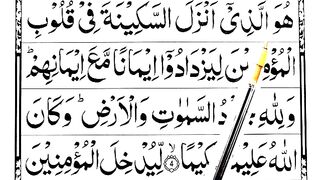 هُوَ الَّذِیْۤ اَنْزَلَ السَّكِیْنَةَ فِیْ قُلُوْبِ
لِیَزْدَادُوْۤا اِیْمَانًا مَّعَ اِیْمَانِهِمْ ؕ
وَلِلّٰهِ السَّمٰوٰتِ وَالْاَرْضِ ؕ وَكَانَ
اللّٰهُ ۙ۴ لِّیُدْخِلَ الْمُؤْمِنِیْنَ